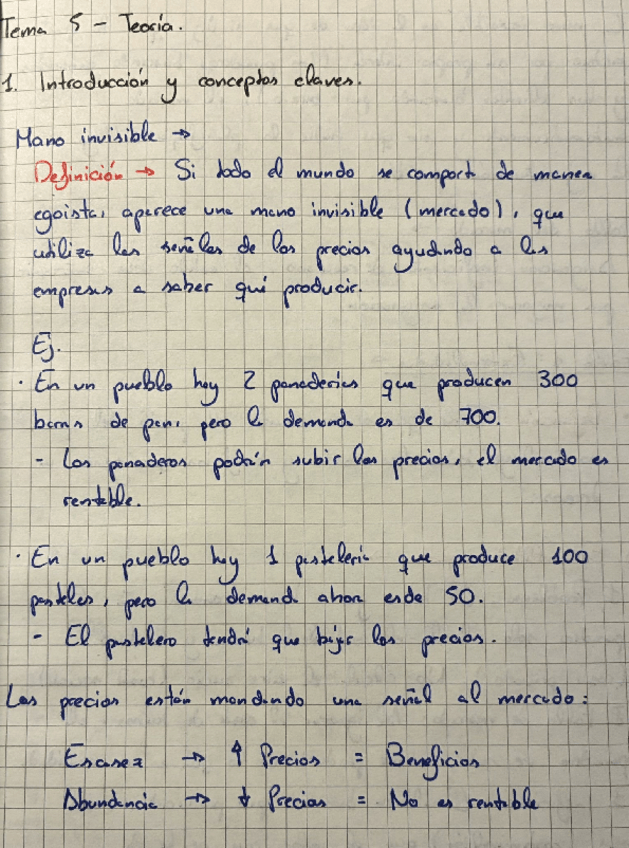 Tema 5 - Teoría.
1. Introducción y conceptos claves.
Mano invisible →
Definición → Si todo el mundo se comport de manera
egoista, aparece una mano invisible (mercado), que
utiliza las señales de los precios ayudando a las
empresas a saber qué producir.
Ej.
· En un pueblo hay 2 panaderías que producen 300
barras de pan, pero la demanda es de 700.
- Los panaderos podrán subir los precios, el mercado es
rentable.
· En un pueblo hay 1 pastelería que produce 100
pasteles, pero la demanda ahora es de 50.
- El pastelero tendrá que bajar los precios.
Los precios están mandando una señal al mercado:
Escasez → ↑ Precios = Beneficios
Abundancia → ↓ Precios = No es rentable